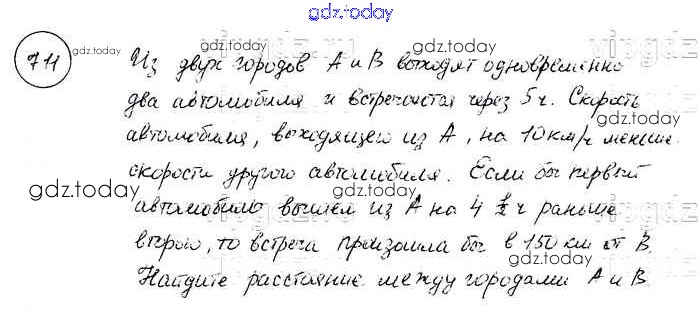 gdz.today
711 Из двух городов А и В выходят одновременно
два автомобиля и встречаются через 5 ч. Скорость
автомобиля, выходящего из А, на 10 км/ч меньше
скорости другого автомобиля. Если бы первый
автомобиль вышел из А на 4 1/2 ч раньше
второго, то встреча произошла бы в 150 км от В.
Найдите расстояние между городами А и В
gdz.today
gdz.today
gdz.today
gdz.today
gdz.today
gdz.today
gdz.today
gdz.today
gdz.today
vipgdz
vipgdz